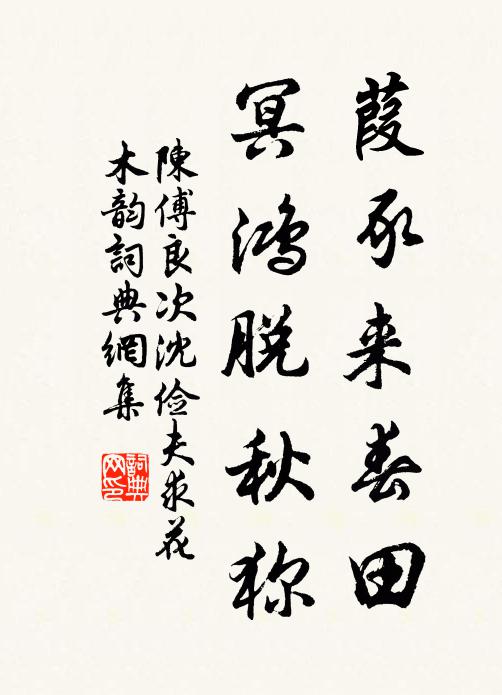 葭豕来春田
冥鸿脱秋狝
陳傅良次沈俭夫求花
木韵詞典網集
詞典
网印